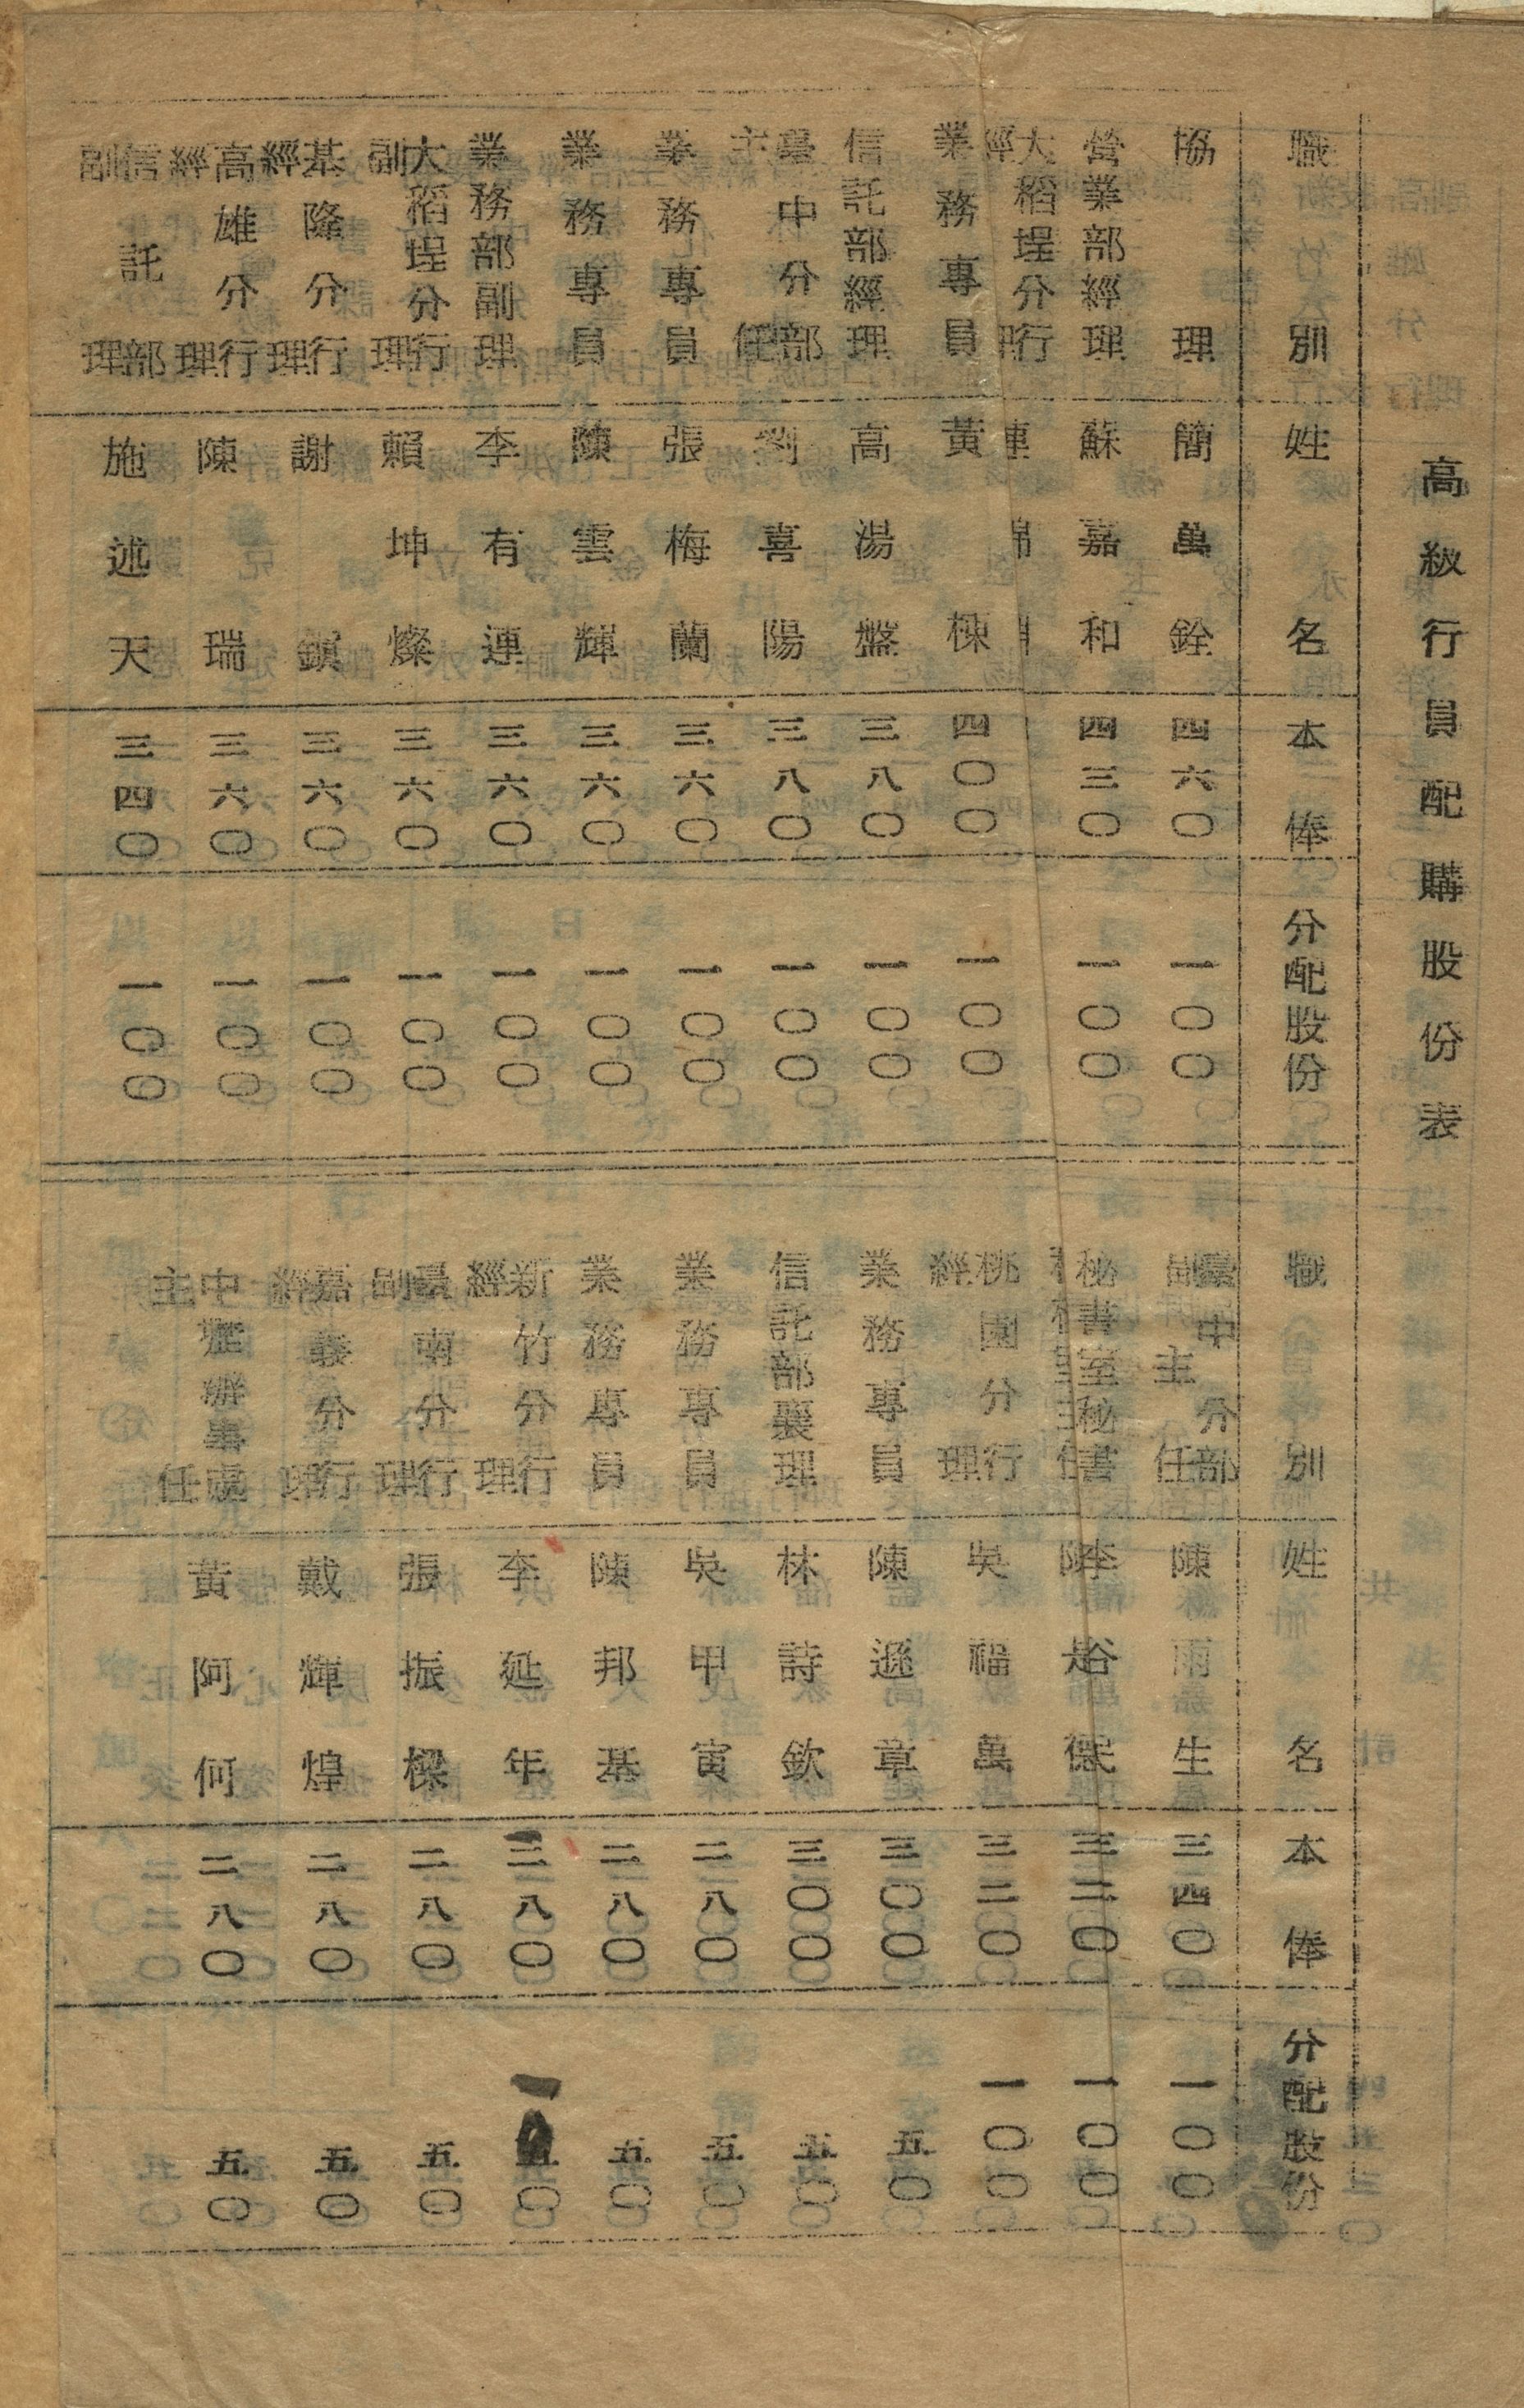 高級行員配購股份表
職別 姓名 本俸 分配股份
協理 簡萬銓 四六〇 一〇〇
營業部經理 蘇嘉和 四三〇 一〇〇
大稻埕分行經理
業務專員 黃棟 四〇〇 一〇〇
信託部經理 高湯盤 三八〇 一〇〇
臺中分部主任 劉喜陽 三八〇 一〇〇
業務專員 張梅蘭 三六〇 一〇〇
業務專員 陳雲輝 三六〇 一〇〇
業務部副理 李有連 三六〇 一〇〇
大稻埕分行副理 賴坤燦 三六〇 一〇〇
基隆分行經理 謝鎮 三六〇 一〇〇
高雄分行經理 陳瑞 三六〇 一〇〇
信託部副理 施述天 三四〇 一〇〇
職別 姓名 本俸 分配股份
臺中分部副主任 陳雨生 三四〇 一〇〇
秘書室秘書 李谷民 三二〇 一〇〇
桃園分行經理 吳福萬 三二〇 一〇〇
業務專員 陳遜章 三〇〇 五〇
信託部襄理 林詩欽 三〇〇 五〇
業務專員 吳甲寅 二八〇 五〇
業務專員 陳邦基 二八〇 五〇
新竹分行經理 李延年 二八〇 五〇
臺南分行副理 張振樑 二八〇 五〇
嘉義分行經理 戴輝煌 二八〇 五〇
中壢辦事處主任 黃阿何 二八〇 五〇